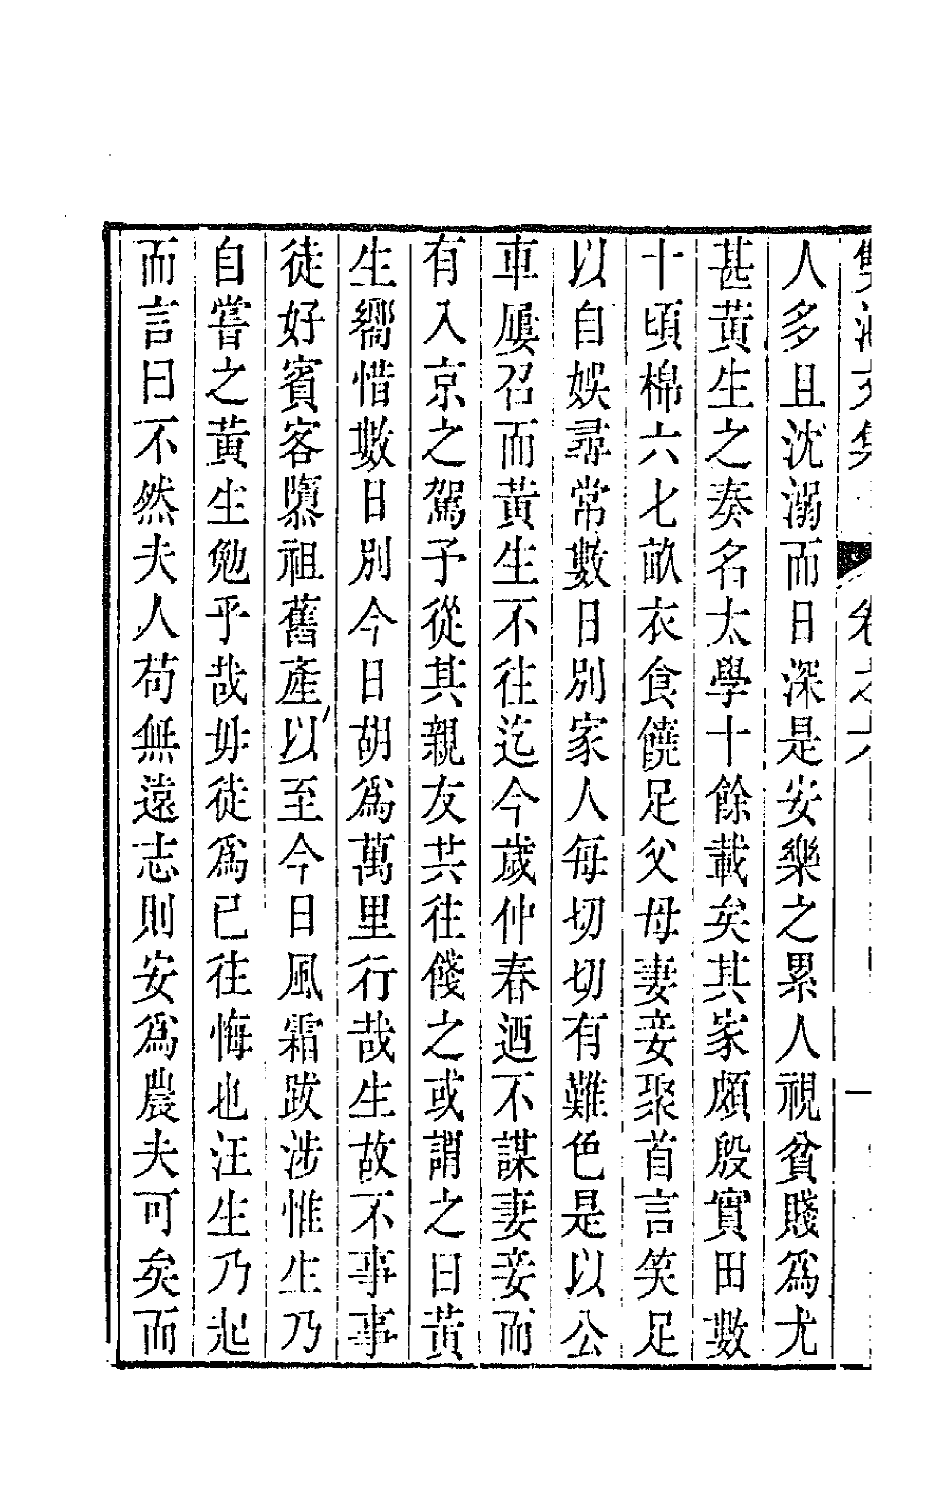 人多且沈溺而日深是安樂之累人視貧賤爲尤
甚黃生之奏名太學十餘載矣其家頗殷實田數
十頃棉六七畝衣食饒足父母妻妾聚首言笑足
以自娛尋常數日別家人每切切有難色是以公
車屢召而黃生不往迄今歲仲春迺不謀妻妾而
有入京之駕予從其親友共往餞之或謂之曰黃
生嚮惜數日別今日胡爲萬里行哉生故不事事
徒好賓客隳祖舊產以至今日風霜跋涉惟生乃
自嘗之黃生勉乎哉毋徒爲已往悔也汪生乃起
而言曰不然夫人苟無遠志則安爲農夫可矣而